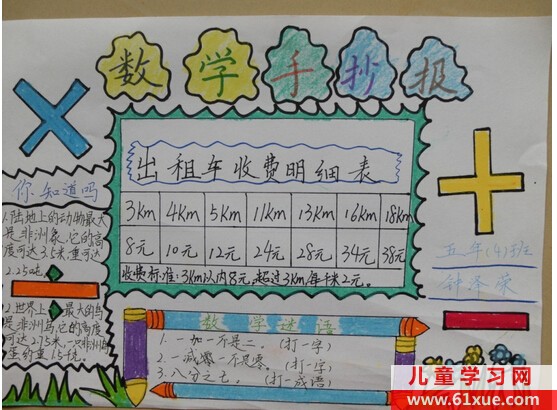 数学手抄报
出租车收费明细表
3Km 4Km 5Km 11Km 13Km 16Km 18Km
8元 10元 12元 24元 28元 34元 38元
收费标准:3Km以内8元,超过3Km每千米2元。
你知道吗
1.陆地上的动物最大
是非洲象,它的高
度可达3.5米,重可达
2.25吨。
2.世界上最大的鸟
是非洲鸟,它的高度
可达2.75米,一只非洲鸟
蛋约重1.5千克。
五年(4)班
钟泽荣
数学迷语
1.一加一不是二。(打一字)
2.一减零不是零。(打一字)
3.八分之七。(打一成语)
儿童学习网
http://www.61xue.com